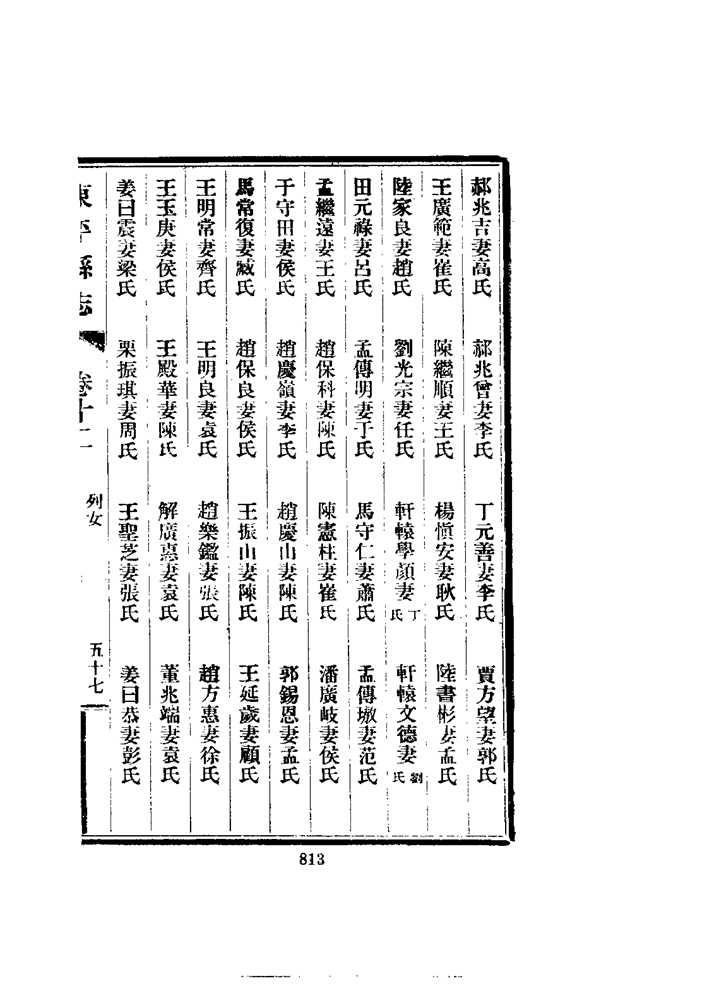 郝兆吉妻高氏　郝兆曾妻李氏　丁元善妻李氏　賈方望妻郭氏
王廣範妻崔氏　陳繼順妻王氏　楊愼安妻耿氏　陸書彬妻孟氏
陸家良妻趙氏　劉光宗妻任氏　軒轅學顏妻丁氏　軒轅文德妻劉氏
田元祿妻呂氏　孟傳明妻于氏　馬守仁妻蕭氏　孟傳墩妻范氏
孟繼遠妻王氏　趙保科妻陳氏　陳憲柱妻崔氏　潘廣岐妻侯氏
于守田妻侯氏　趙慶嶺妻李氏　趙慶山妻陳氏　郭錫恩妻孟氏
馬常復妻臧氏　趙保良妻侯氏　王振山妻陳氏　王延歲妻顧氏
王明常妻齊氏　王明良妻袁氏　趙樂鑑妻張氏　趙方惠妻徐氏
王玉庚妻侯氏　王殿華妻陳氏　解廣惠妻袁氏　董兆端妻袁氏
姜日震妻梁氏　栗振琪妻周氏　王聖芝妻張氏　姜日恭妻彭氏
東平縣志　卷十二　列女　五十七
813